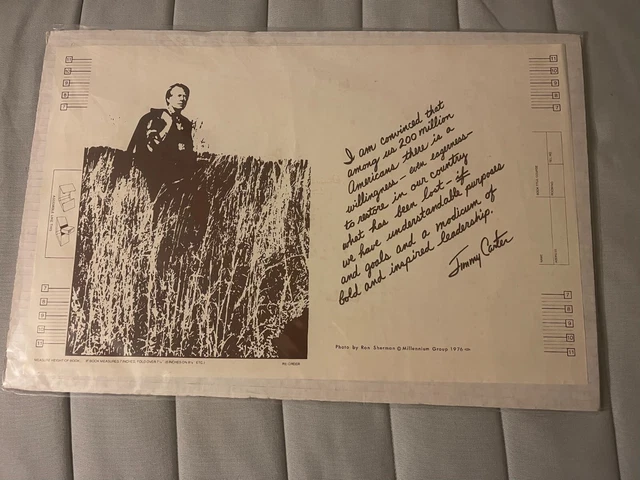 I am convinced that
among us 200 million
Americans there is a
willingness – even eagerness –
to restore in our country
what has been lost – if
we have understandable purposes
and goals and a modicum of
bold and inspired leadership.
Jimmy Carter
Photo by Ron Sherman © Millennium Group 1976
11
10
9
8
7
11
10
9
8
7
7
8
9
10
11
7
8
9
10
11